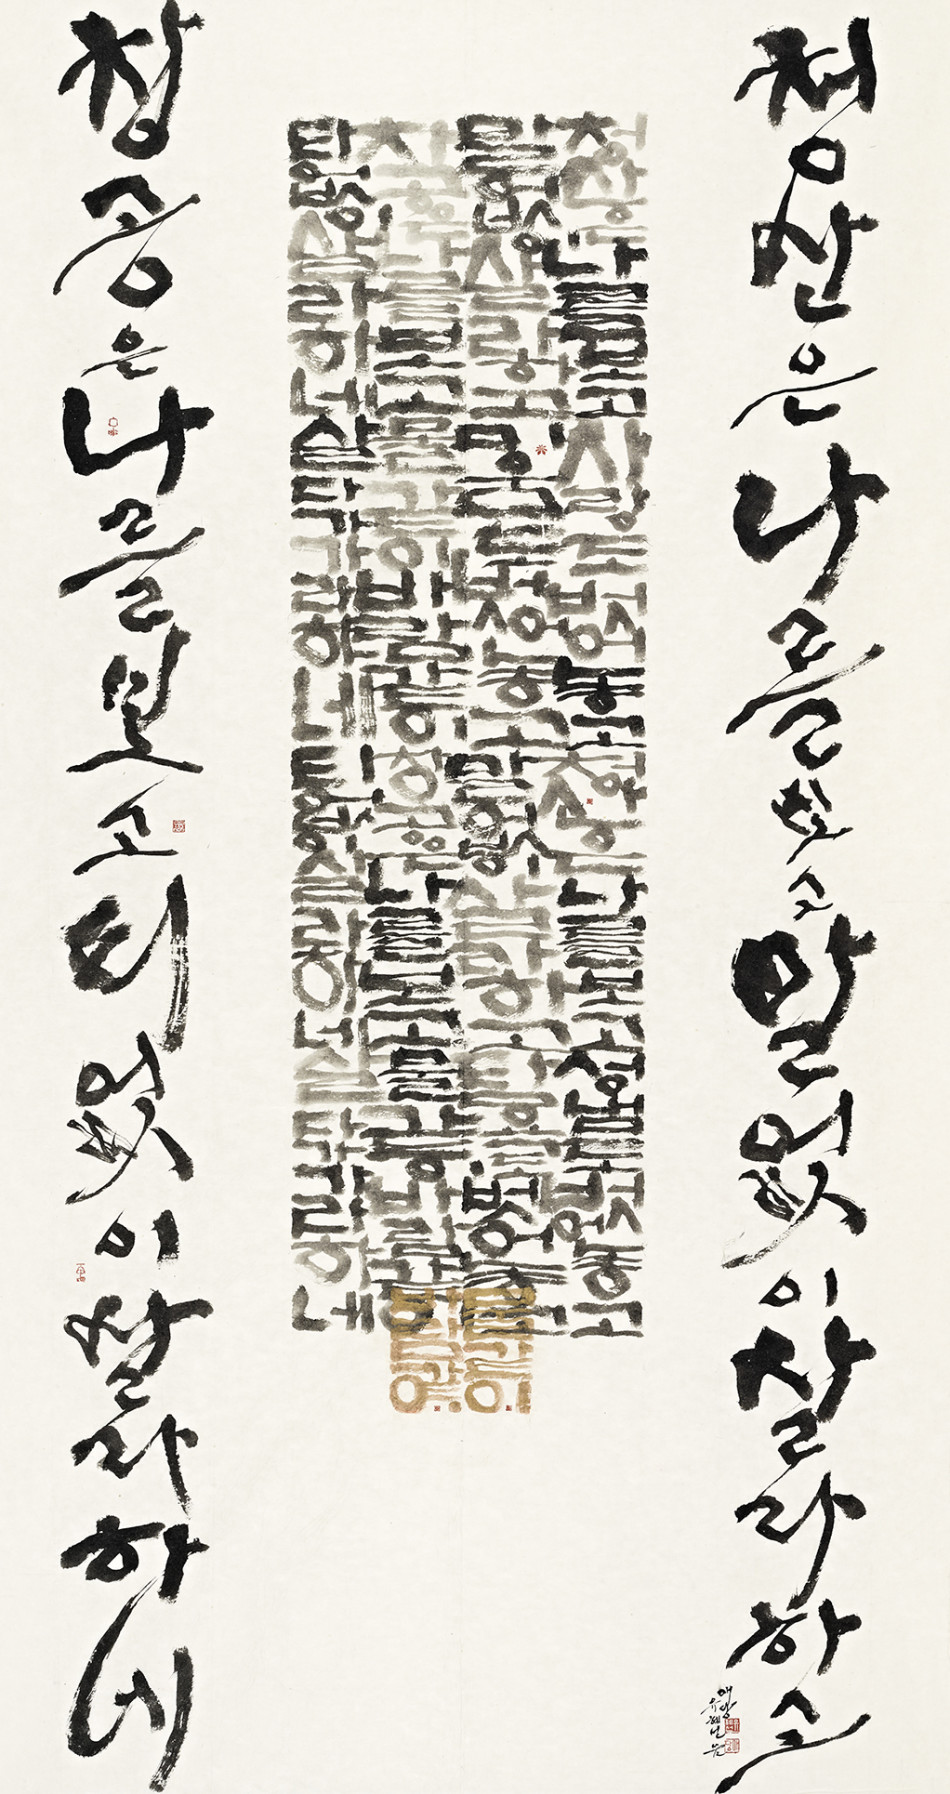 청산은나를보고말없이살라하고
청산은나를보고사랑도벗어놓고청산은나를보고성냄도벗어놓고
말없이살라하고미움도벗어놓고말없이살라하고탐욕도벗어놓고
창공은나를보고물같이바람같이창공은나를보고물같이바람같이
티없이살라하네살다가가라하네티없이살라하네살다가가라하네
창공은나를보고티없이살라하네